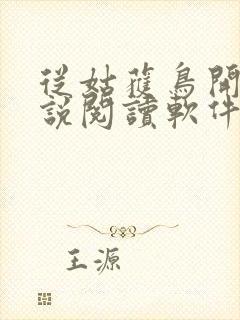 從姑獲鳥開
說閱讀軟件
王源